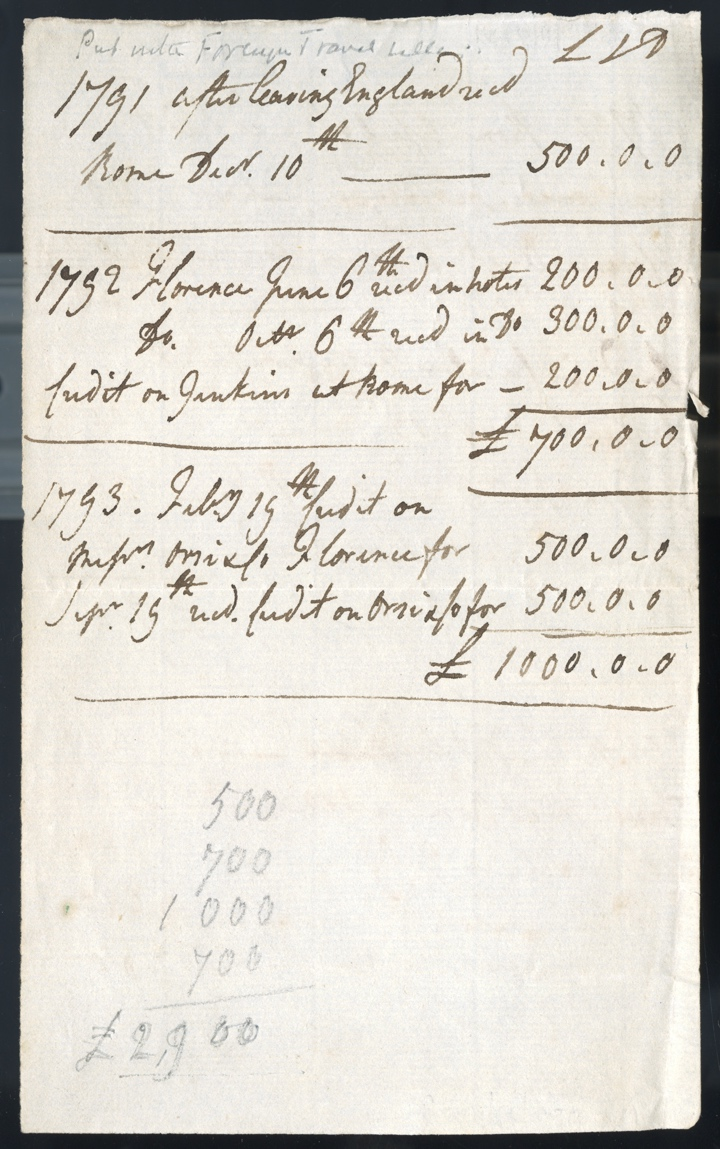 Put with Foreign Travel bills
£ s D
1791 after leaving England recd
Rome Decr. 10th 500.0.0
1792 Florence June 6th recd in notes 200.0.0
Do. Octr. 6th recd in Do 300.0.0
Credit on Jenkins at Rome for 200.0.0
£ 700.0.0
1793. Feby 19th Credit on
Messrs. Orsi & Co Florence for 500.0.0
Sepr 19th recd. Credit on Orsi & Co for 500.0.0
£ 1000.0.0
500
700
1000
700
£2,900